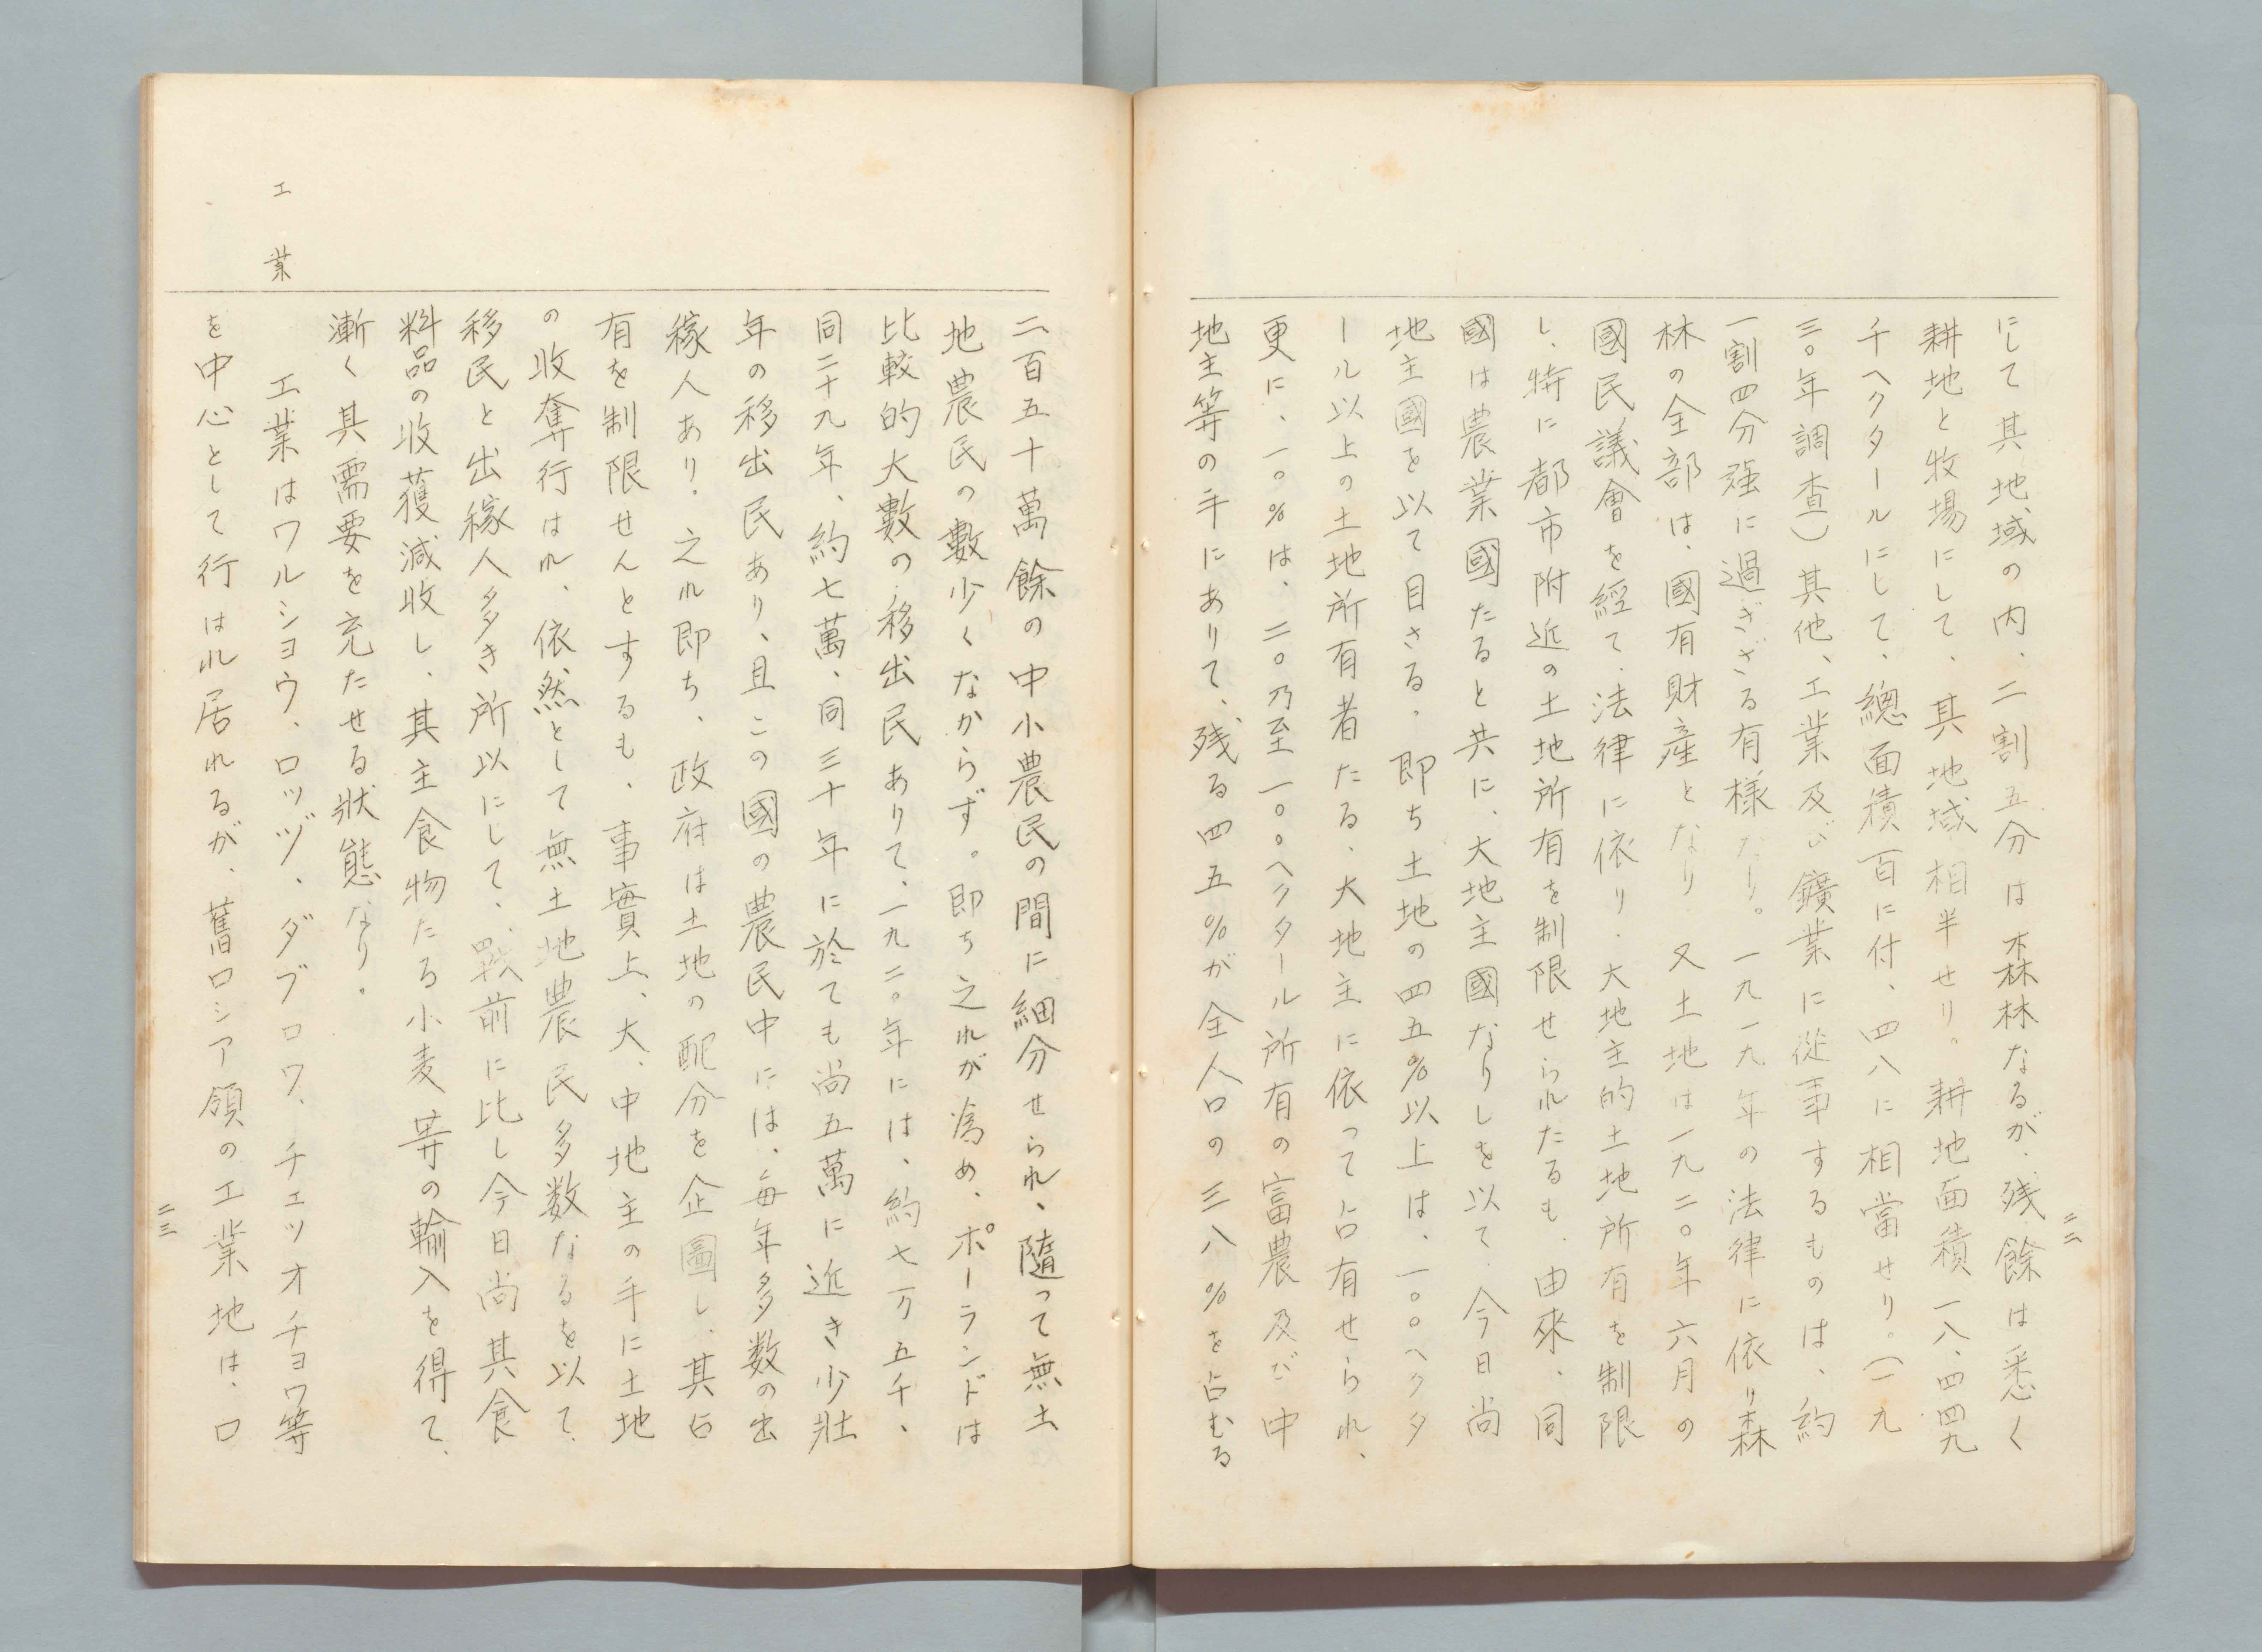 にして其地域の内、二割五分は森林なるが、残餘は悉く
耕地と牧場にして、其地域相半せり。耕地面積一八、四四九
千ヘクタールにして、總面積百に付、四八に相當せり。(一九
三〇年調査)其他、工業及び鑛業に從事するものは、約
一割四分强に過ぎざる有様なり。一九一九年の法律に依り森
林の全部は、國有財産となり又土地は一九二〇年六月の
國民議會を經て、法律に依り、大地主的土地所有を制限
し、特に都市附近の土地所有を制限せられたるも、由來、同
國は農業國たると共に、大地主國なりしを以て、今日尚
地主國を以て目さる。即ち土地の四五%以上は、一〇〇ヘクタ
ール以上の土地所有者たる、大地主に依って占有せられ、
更に、一〇%は、二〇乃至一〇〇ヘクタール所有の富農及び中
地主等の手にありて、残る四五%が全人口の三八%を占むる
二二
二百五十萬餘の中小農民の間に細分せられ、隨って無土
地農民の數少くなからず。即ち之れが為め、ポーランドは
比較的大數の移出民ありて、一九二〇年には、約七万五千、
同二十九年、約七萬、同三十年に於ても尚五萬に近き少壯
年の移出民あり、且この國の農民中には、毎年多数の出
稼人あり。之れ即ち、政府は土地の配分を企圖し、其占
有を制限せんとするも、事實上、大、中地主の手に土地
の收奪行はれ、依然として無土地農民多数なるを以て、
移民と出稼人多き所以にして、戰前に比し今日尚其食
料品の收獲減收し、其主食物たる小麦等の輸入を得て、
漸く其需要を充たせる狀態なり。
工業
工業はワルショウ、ロッヅ、ダブロワ、チェッオチョワ等
を中心として行はれ居れるが、舊ロシア領の工業地は、ロ
二三